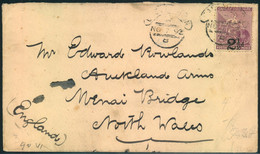 Mr Edward Rowlands
Auckland Arms
Menai Bridge
North Wales
(England)
2½